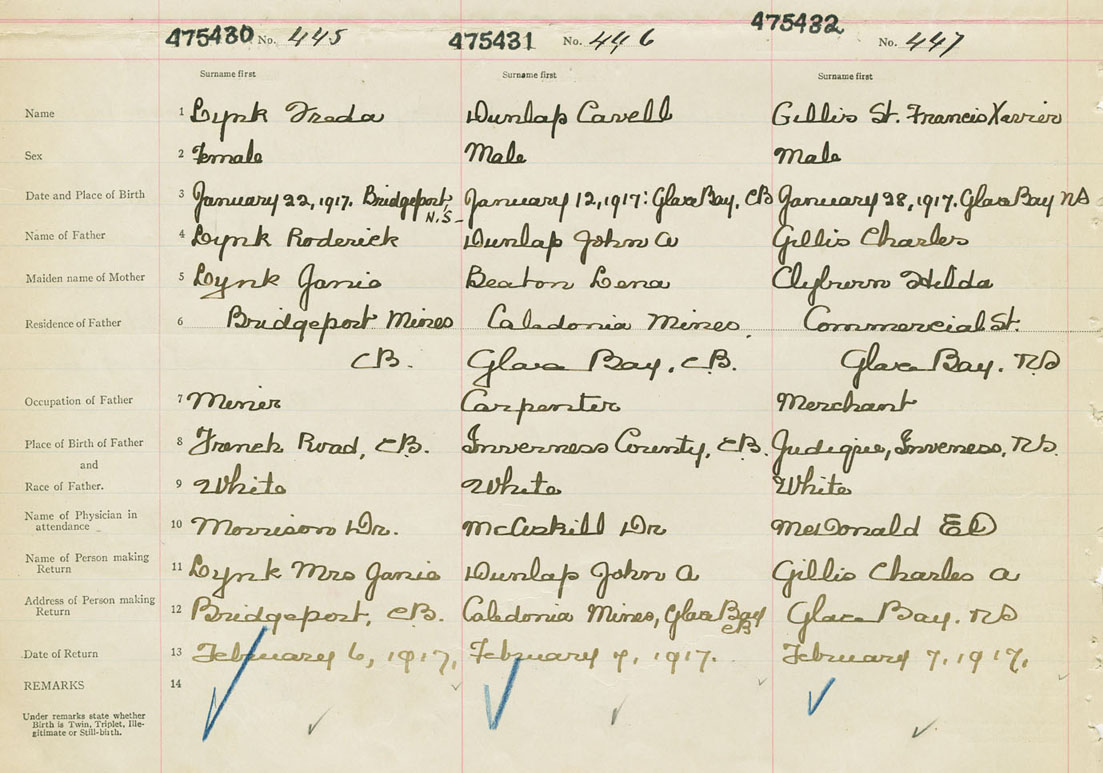 475430 No. 445 475431 No. 446 475432 No. 447
Surname first Surname first Surname first
Name 1 Lynk Freda Dunlap Cavell Gillis St. Francis Xavier
Sex 2 Female Male Male
Date and Place of Birth 3 January 22, 1917. Bridgeport, January 12, 1917: Glace Bay, CB January 28, 1917. Glace Bay NS
N.S-
Name of Father 4 Lynk Roderick Dunlap John A Gillis Charles
Maiden name of Mother 5 Lynk Janie Beaton Lena Clyburn Hilda
Residence of Father 6 Bridgeport Mines Caledonia Mines, Commercial St.
CB. Glace Bay, CB. Glace Bay. NS
Occupation of Father 7 Miner Carpenter Merchant
Place of Birth of Father 8 French Road, CB. Inverness County, CB. Judique, Inverness, NS.
and
Race of Father. 9 White White White
Name of Physician in
attendance 10 Morrison Dr. McAskill Dr McDonald ED
Name of Person making
Return 11 Lynk Mrs Janie Dunlap John A Gillis Charles A
Address of Person making
Return 12 Bridgeport, CB. Caledonia Mines, Glace Bay Glace Bay. NS
CB
Date of Return 13 February 6, 1917. February 7, 1917. February 7, 1917.
REMARKS 14
Under remarks state whether
Birth is Twin, Triplet, Ille-
gitimate or Still-birth.